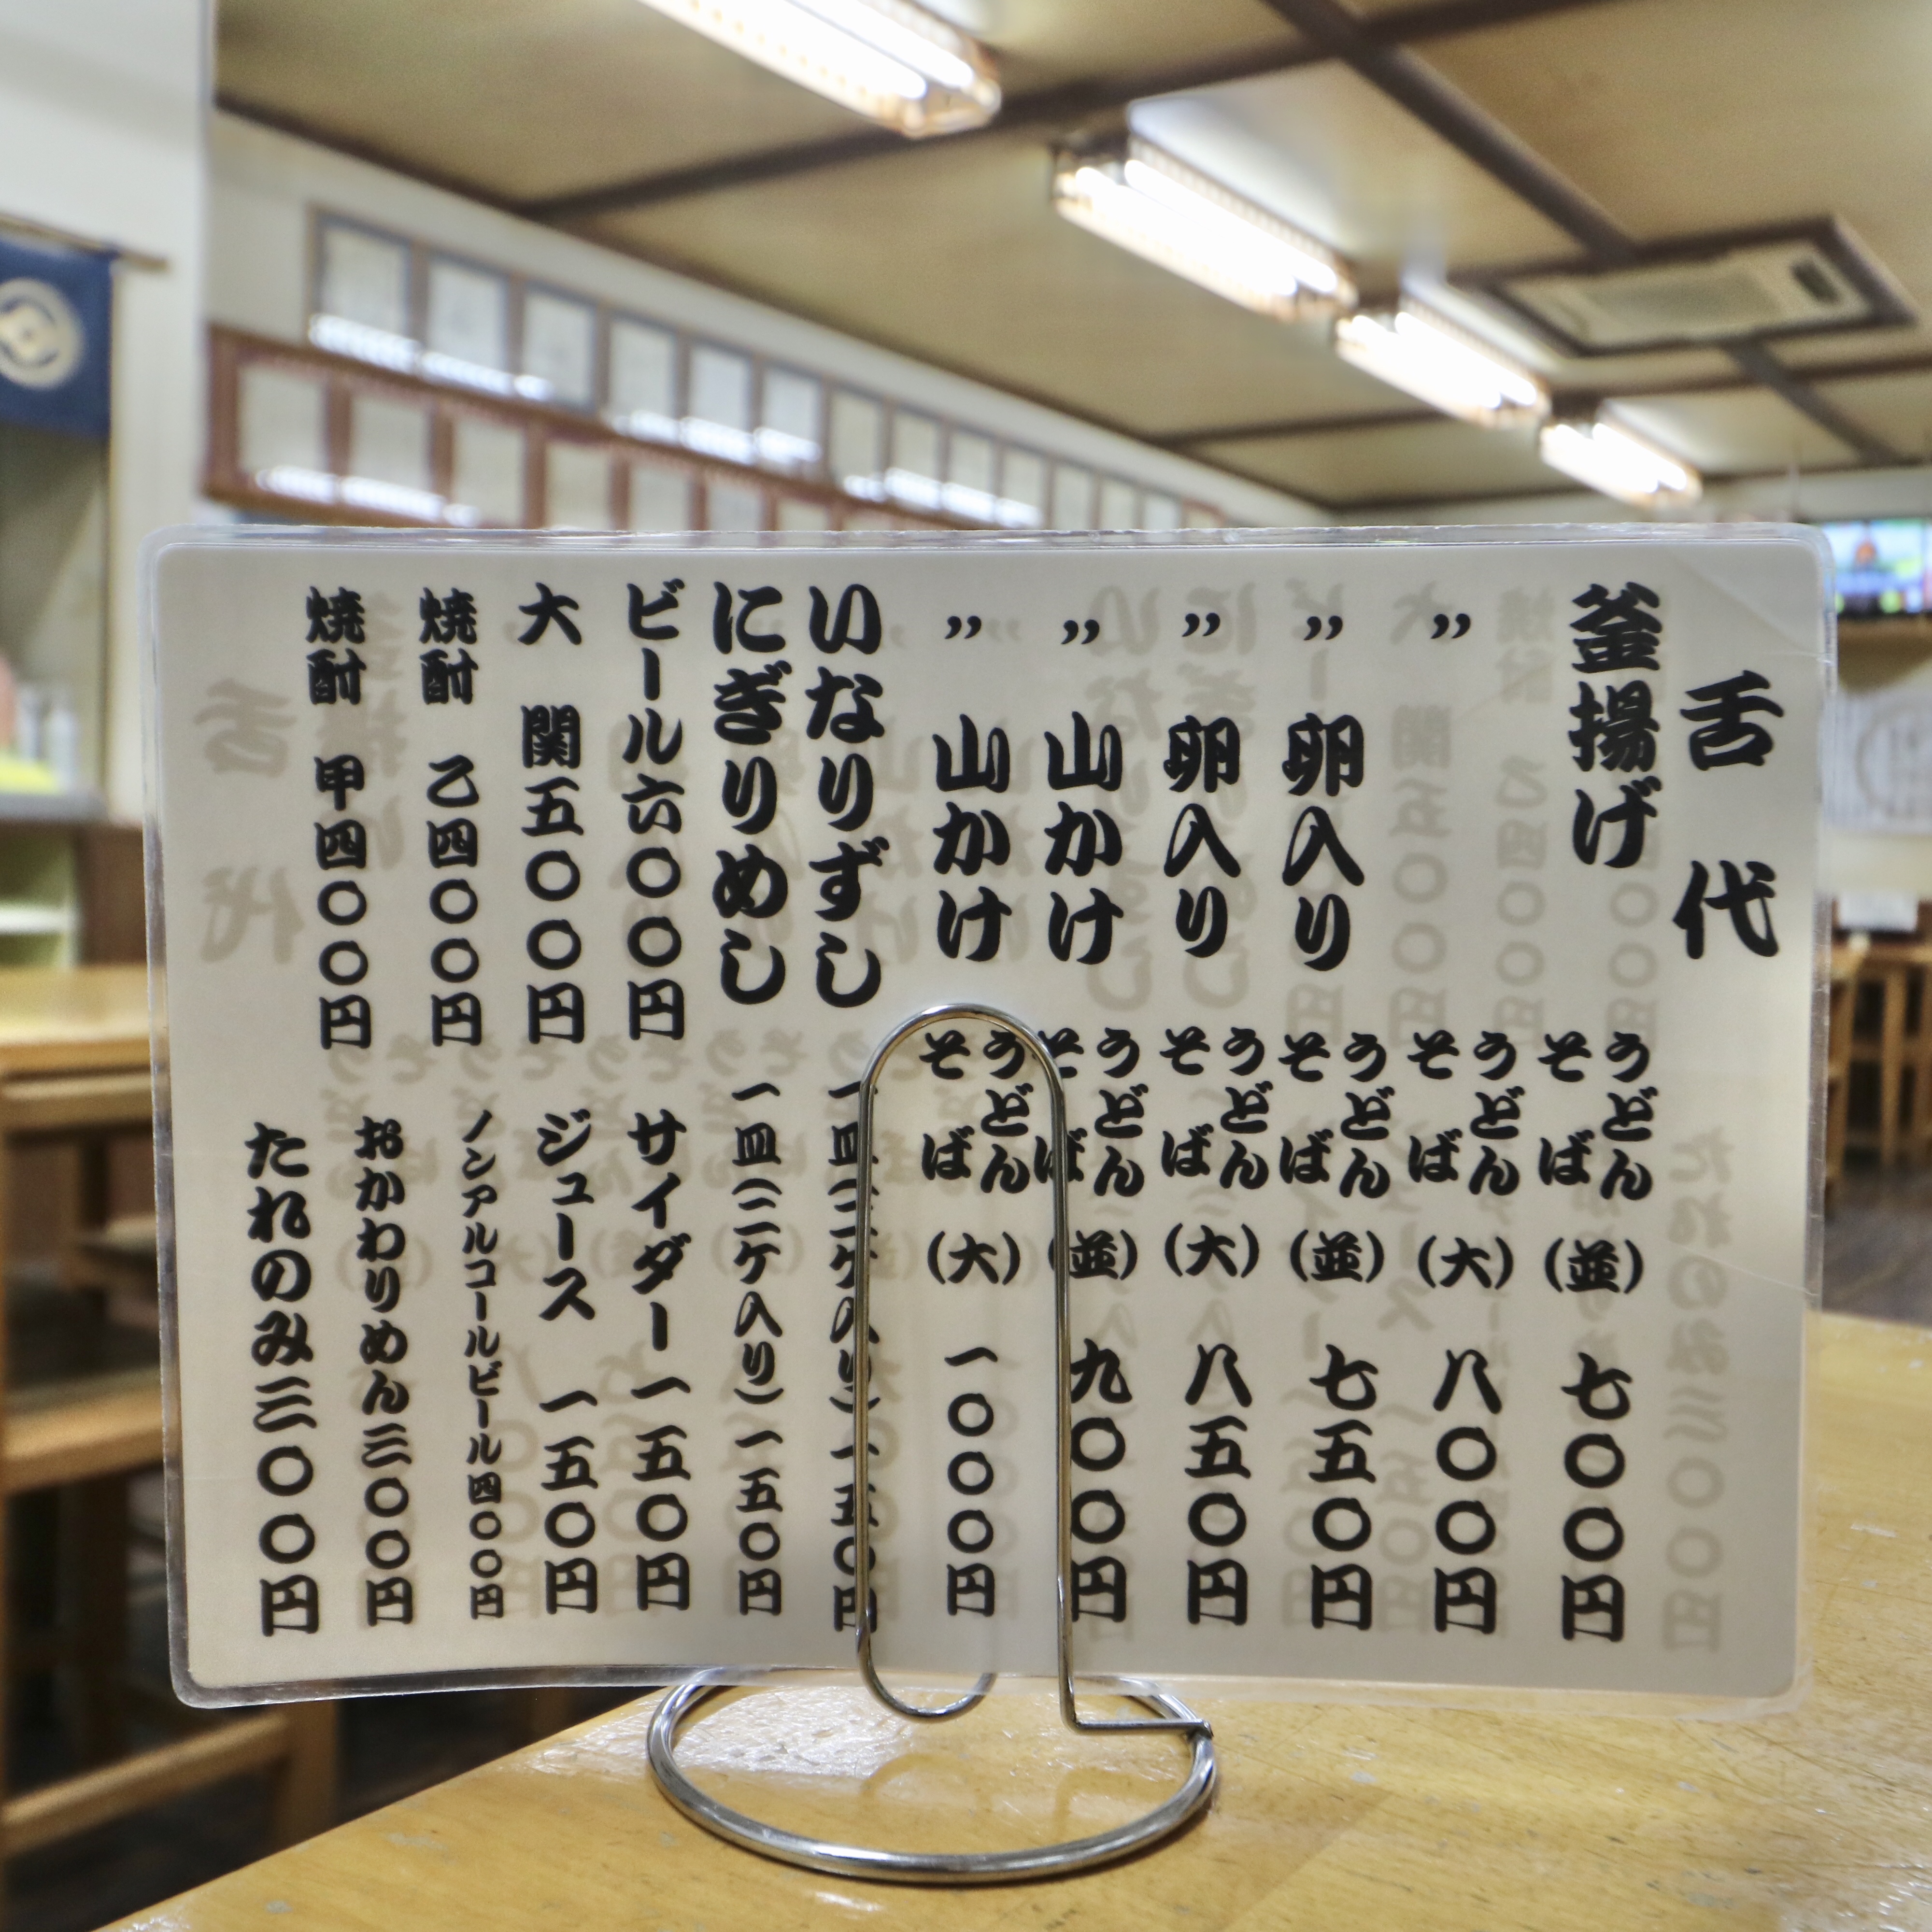 舌代
釜揚げ うどん そば (並) 七〇〇円
〃 うどん そば (大) 八〇〇円
〃 卵入り うどん そば (並) 七五〇円
〃 卵入り うどん そば (大) 八五〇円
〃 山かけ うどん そば (並) 九〇〇円
〃 山かけ うどん そば (大) 一〇〇〇円
いなりずし 一皿(二ケ入り)一五〇円
にぎりめし 一皿(二ケ入り)一五〇円
ビール六〇〇円 サイダー一五〇円
大関五〇〇円 ジュース 一五〇円
焼酎 乙四〇〇円 ノンアルコールビール四〇〇円
焼酎 甲四〇〇円 おかわりめん三〇〇円
たれのみ三〇〇円